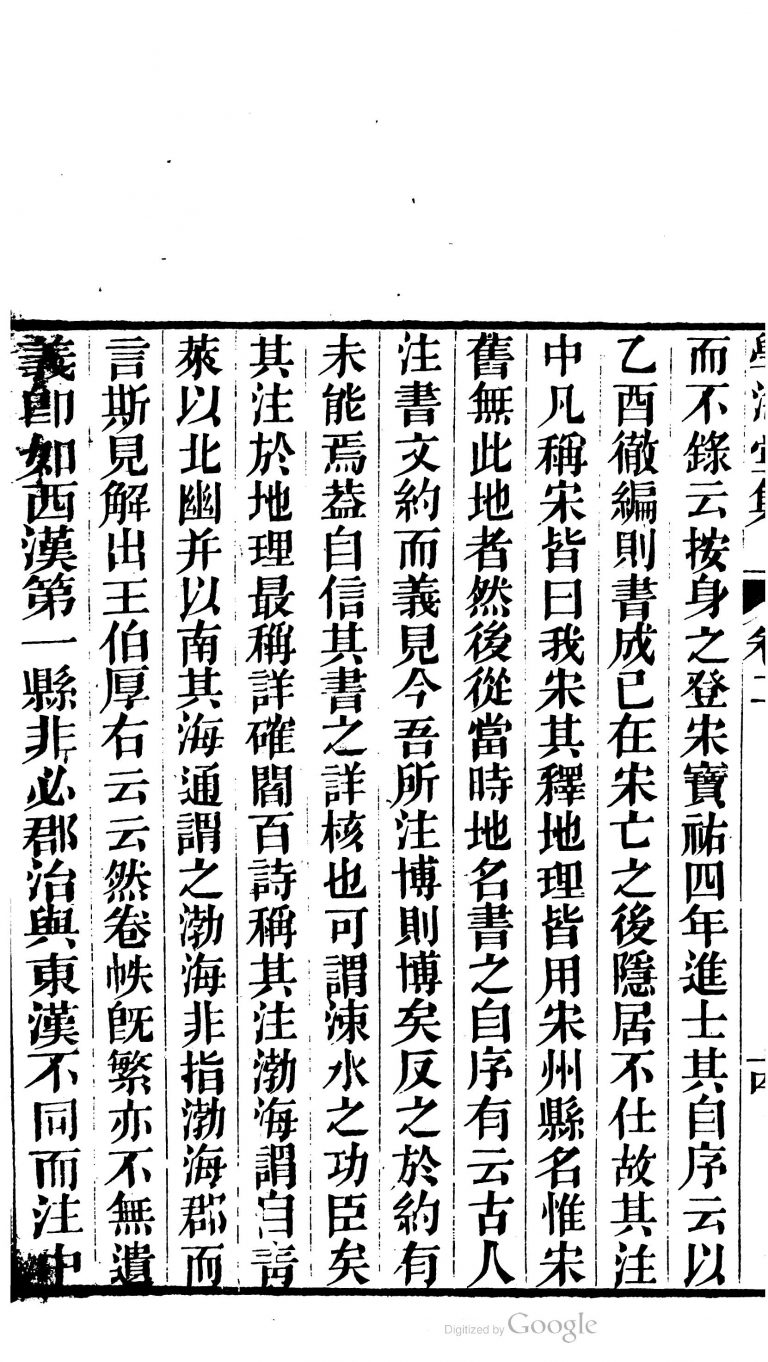 學海堂集 卷二 十四
而不錄云按身之登宋寶祐四年進士其自序云以
乙酉徹編則書成已在宋亡之後隱居不仕故其注
中凡稱宋皆曰我宋其釋地理皆用宋州縣名惟宋
舊無此地者然後從當時地名書之自序有云古人
注書文約而義見今吾所注博則博矣反之於約有
未能焉葢自信其書之詳核也可謂涑水之功臣矣
其注於地理最稱詳確閻百詩稱其注渤海謂自靑
萊以北幽并以南其海通謂之渤海非指渤海郡而
言斯見解出王伯厚右云云然卷帙旣繁亦不無遺
義卽如西漢第一縣非必郡治與東漢不同而注中
Digitized by Google